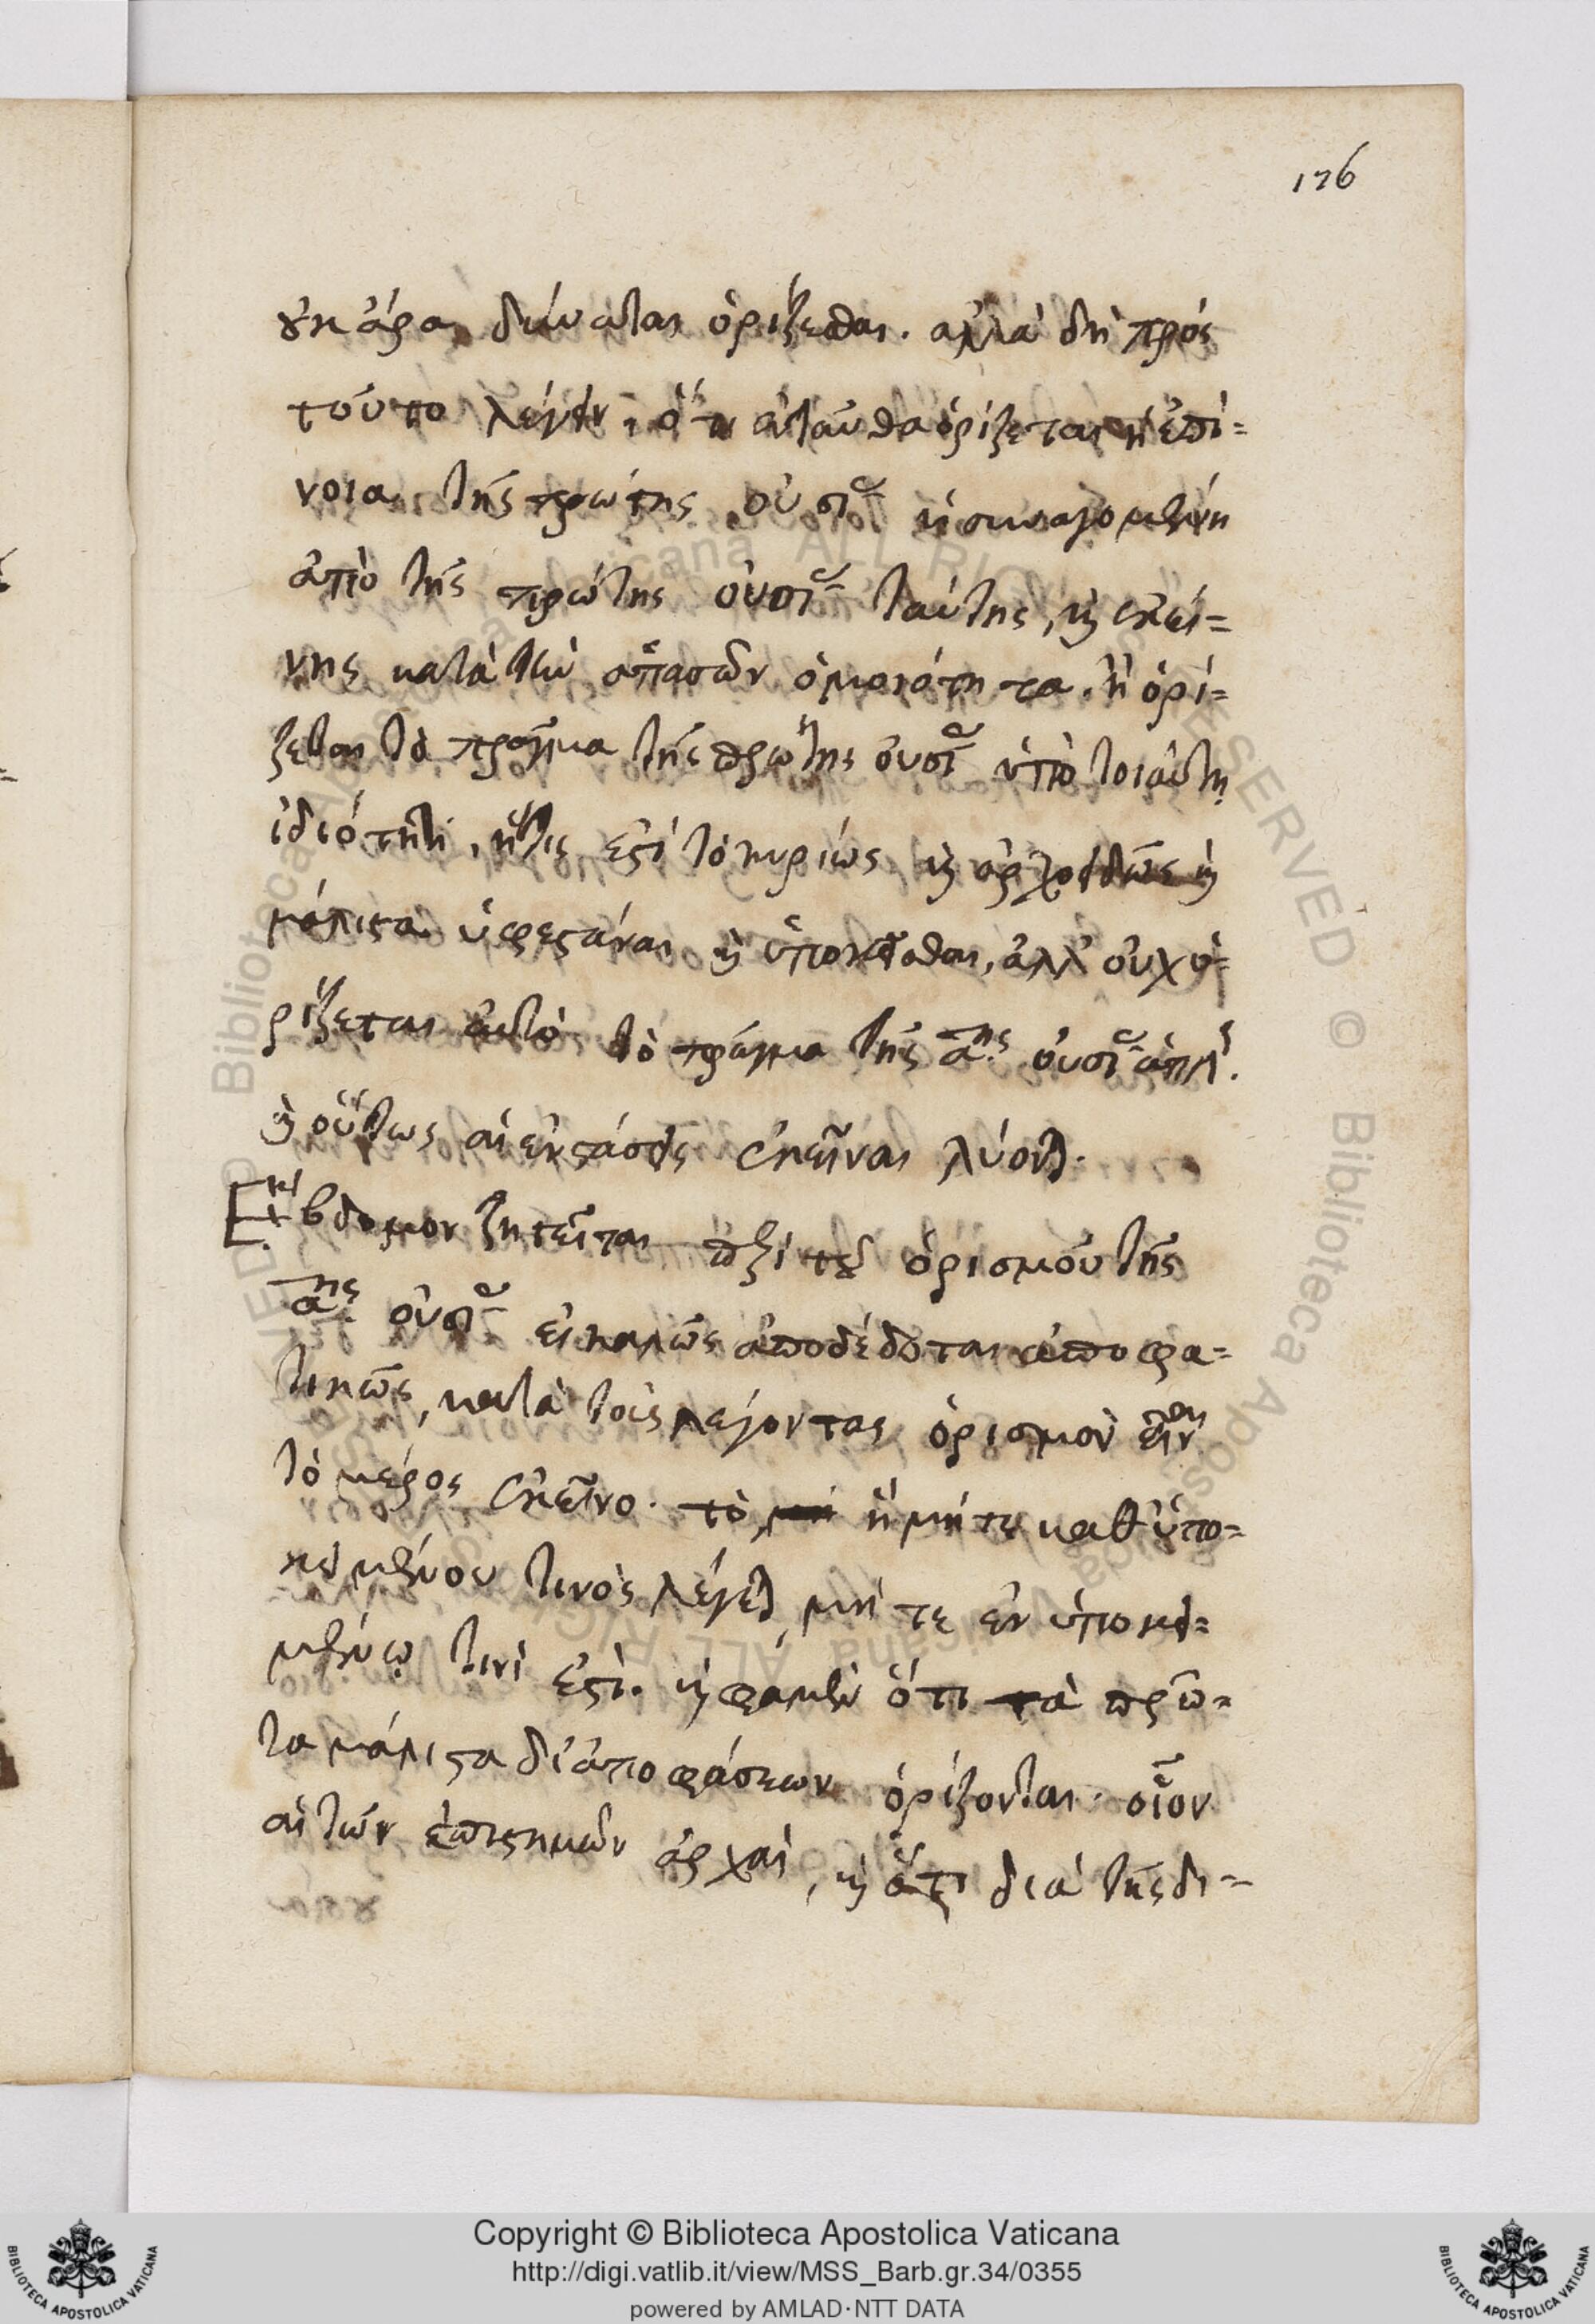 176
οὐκ ἄρα δύναται ὁρίζεσθαι. ἀλλὰ δὴ πρός
τοῦτο λέγειν, ὅτι ἐνταῦθα ὁρίζεται ἡ ἐπί=
νοια τῆς πρώτης οὐσίας ἡ συναγομένη
ἀπὸ τῆς πρώτης οὐσίας ταύτης, καὶ ἐκεί=
νης κατὰ τὴν ἁπασῶν ὁμοιότητα. ἢ ὁρί=
ζεται τὸ πρᾶγμα τῆς πρώτης οὐσίας ὑπὸ τοιαύτῃ
ἰδιότητι, ἥτις ἐστὶ τὸ κυρίως καὶ ἀρχοειδῶς καὶ
μάλιστα ὑφεστάναι καὶ ὑποκεῖσθαι, ἀλλ' οὐχ ὁ=
ρίζεται αὐτὸ τὸ πρᾶγμα τῆς αης οὐσίας ἁπλῶς.
καὶ οὕτως αἱ ἐνστάσεις ἐκεῖναι λύονται.
Ἕβδομον ζητεῖται περὶ τοῦ ὁρισμοῦ τῆς
αης οὐσίας εἰ καλῶς ἀποδέδοται ἀποφα=
τικῶς, κατὰ τοὺς λέγοντας ὁρισμὸν εἶναι
τὸ μέρος ἐκεῖνο. τὸ, ἢ μήτε καθ' ὑπο=
κειμένου τινὸς λέγεται, μήτε ἐν ὑποκει=
μένῳ τινί ἐστι. καὶ φαμὲν ὅτι τὰ πρῶ=
τα μάλιστα δι' ἀποφάσεων ὁρίζονται. οἷον
αἱ τῶν ἐπιστημῶν ἀρχαί, καὶ ἅτε διὰ τῆς δι=
Copyright © Biblioteca Apostolica Vaticana
http://digi.vatlib.it/view/MSS_Barb.gr.34/0355
powered by AMLAD·NTT DATA